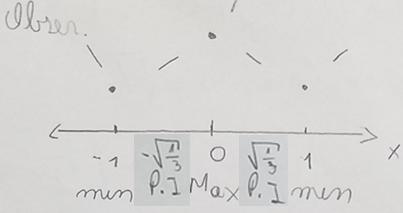 Obser.
-1 -√1/3 0 √1/3 1 x
min P.I Max P.I min